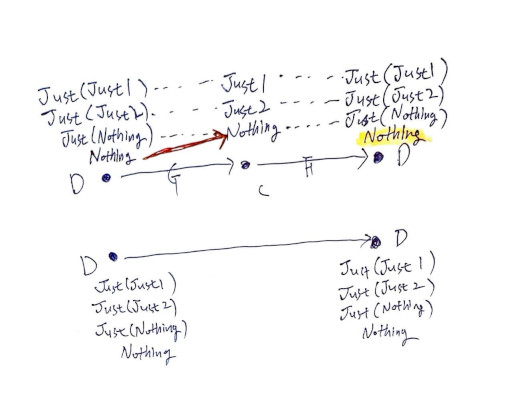 Just(Just1) Just1 Just(Just1)
Just(Just2) Just2 Just(Just2)
Just(Nothing) Nothing Just(Nothing)
Nothing Nothing
D G C F D
D D
Just(Just1) Just(Just1)
Just(Just2) Just(Just2)
Just(Nothing) Just(Nothing)
Nothing Nothing